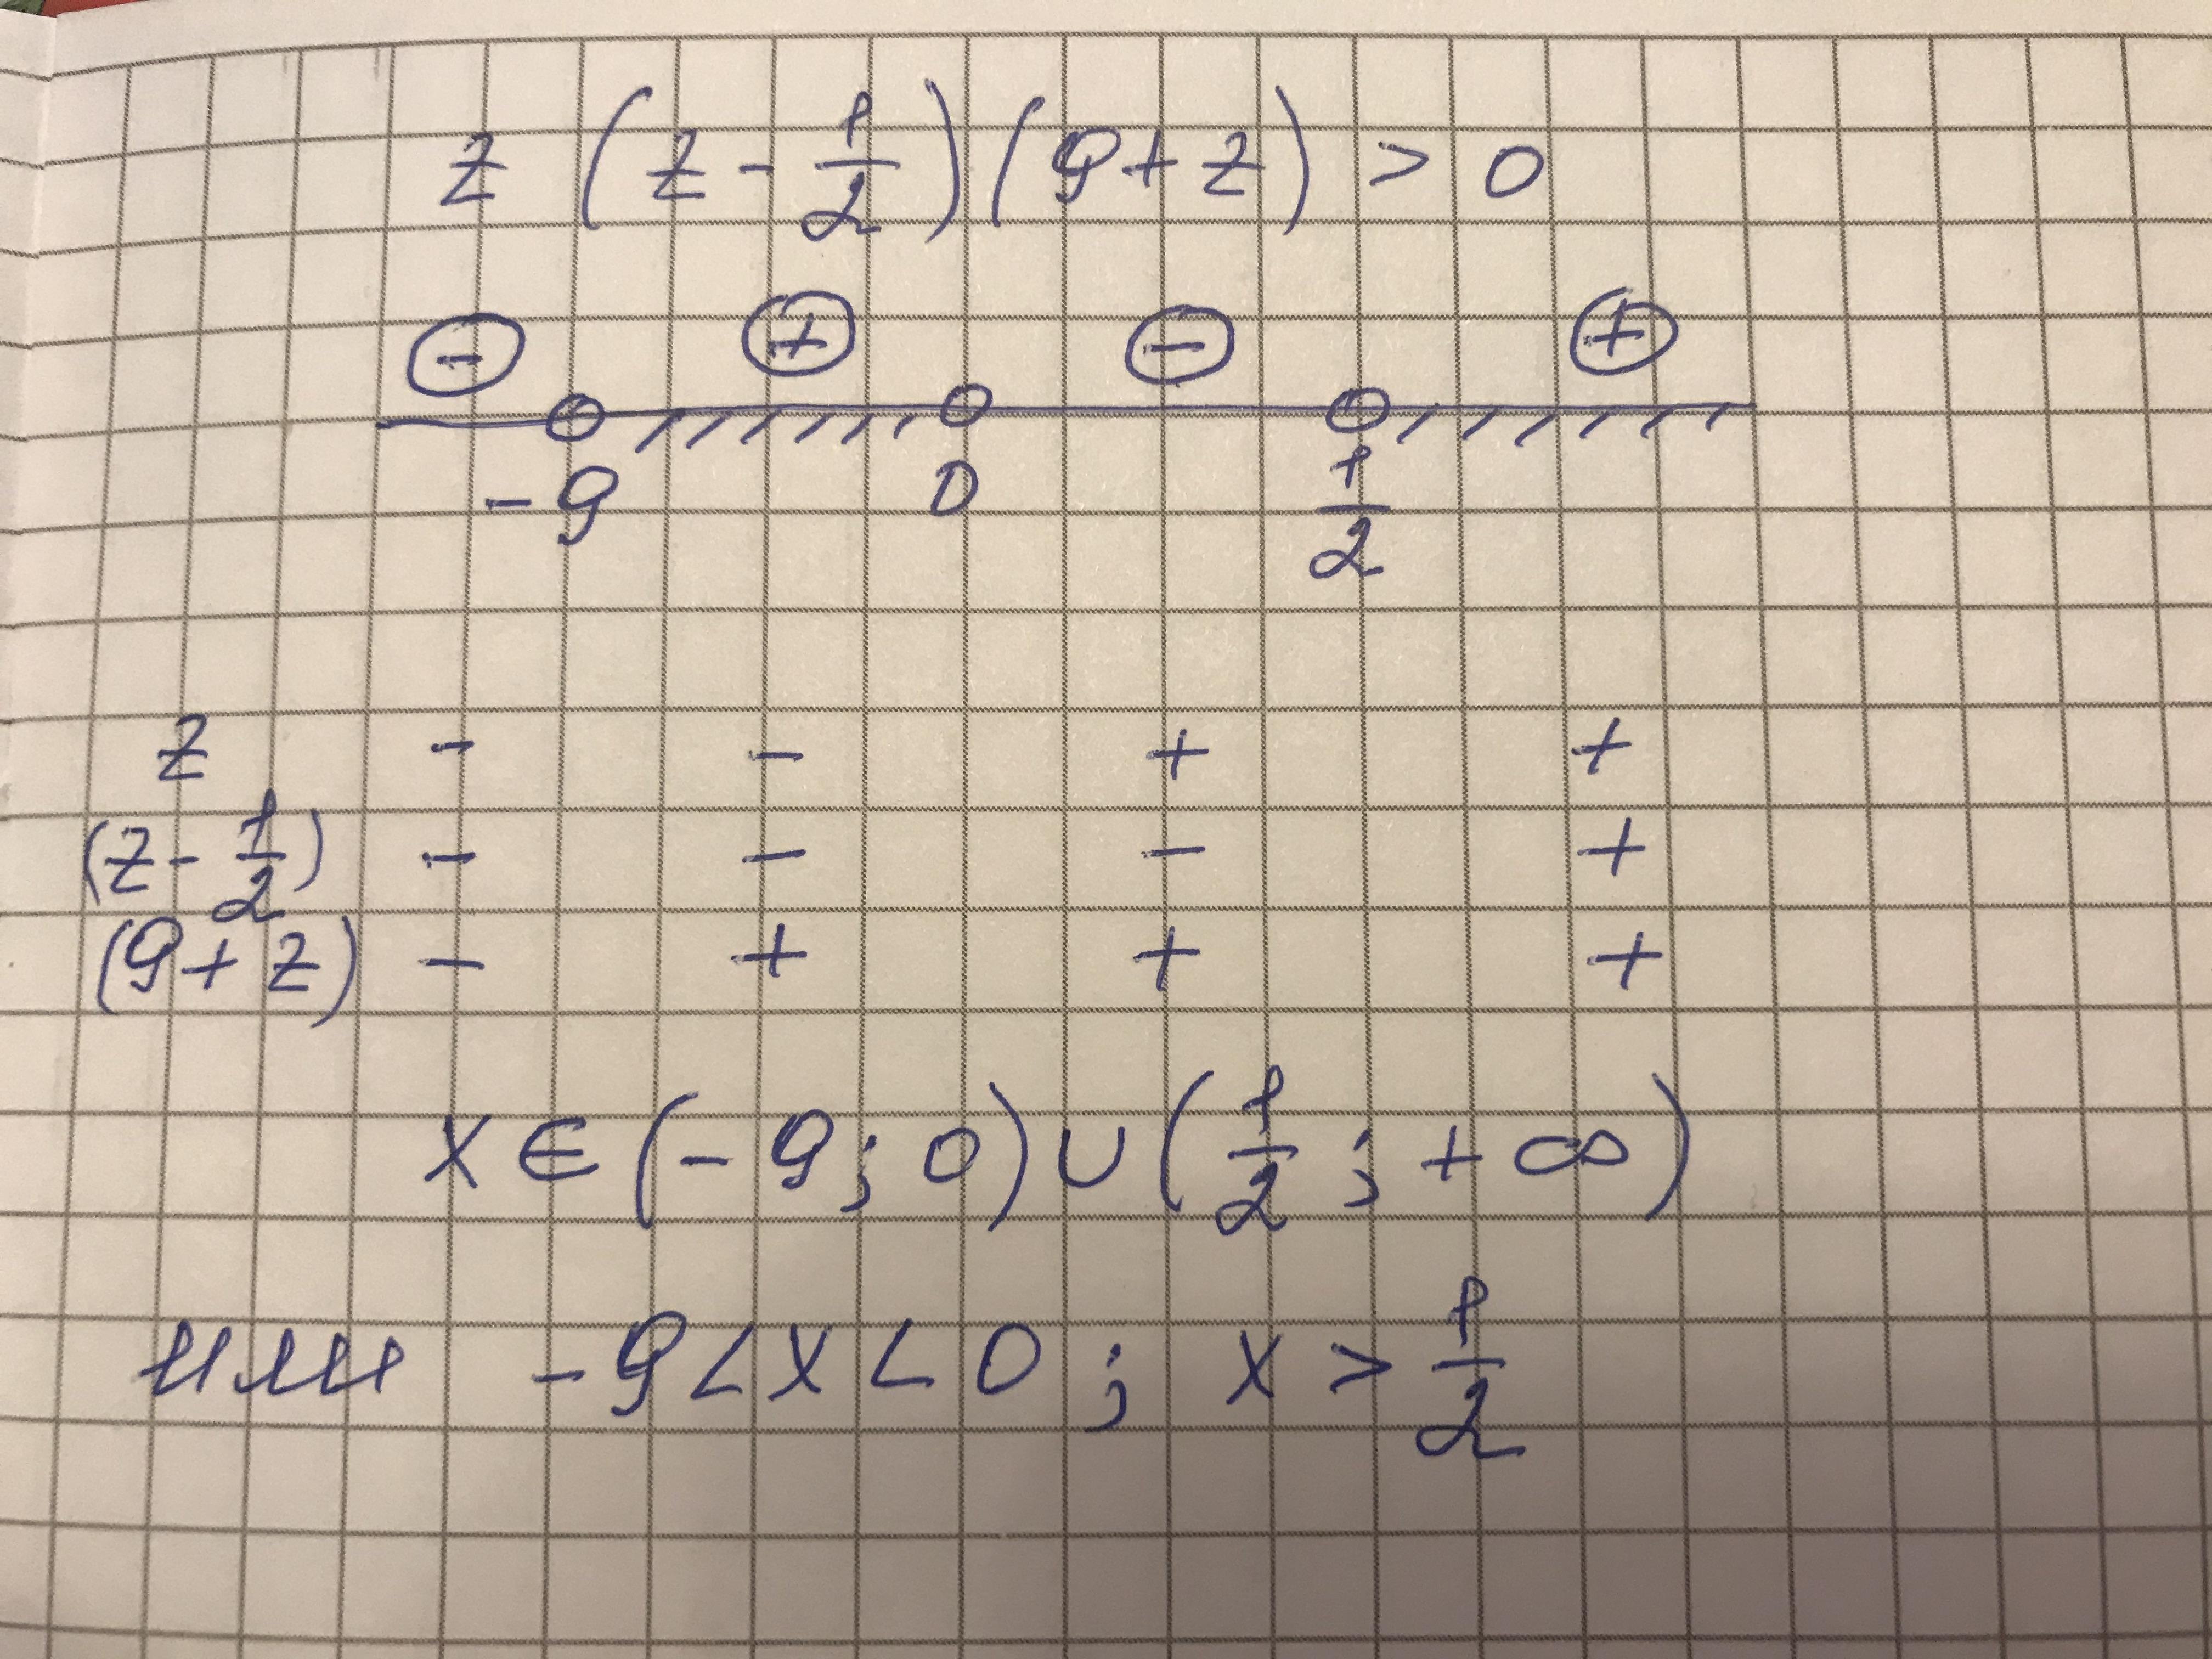 z (z - 1/2)(9 + z) > 0
- + - +
-9 0 1/2
z - - + +
(z - 1/2) - - - +
(9 + z) - + + +
x ∈ (-9; 0) ∪ (1/2; +∞)
или -9 < x < 0; x > 1/2